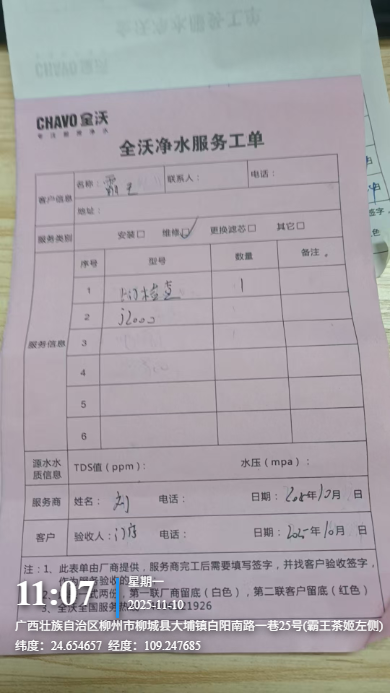 CHAVO 全沃
专注厨房净水
全沃净水服务工单
客户信息
名称：霸王
联系人：
电话：
地址：
服务类别
安装□ 维修☑ 更换滤芯□ 其它□
服务信息
序号 型号 数量 备注
1 检查 1
2 j2000
3
4
5
6
源水水质信息
TDS值（ppm）： 水压（mpa）：
服务商
姓名： 刘 电话： 日期：2025年10月 日
客户
验收人：门店 电话： 日期：2025年10月 日
注：1、此表单由厂商提供，服务商完工后需要填写签字，并找客户验收签字，
作为服务验收的
式两份，第一联厂商留底（白色），第二联客户留底（红色）
3、全沃全国服务热 1926
11:07
星期一
2025-11-10
广西壮族自治区柳州市柳城县大埔镇白阳南路一巷25号(霸王茶姬左侧)
纬度：24.654657 经度：109.247685